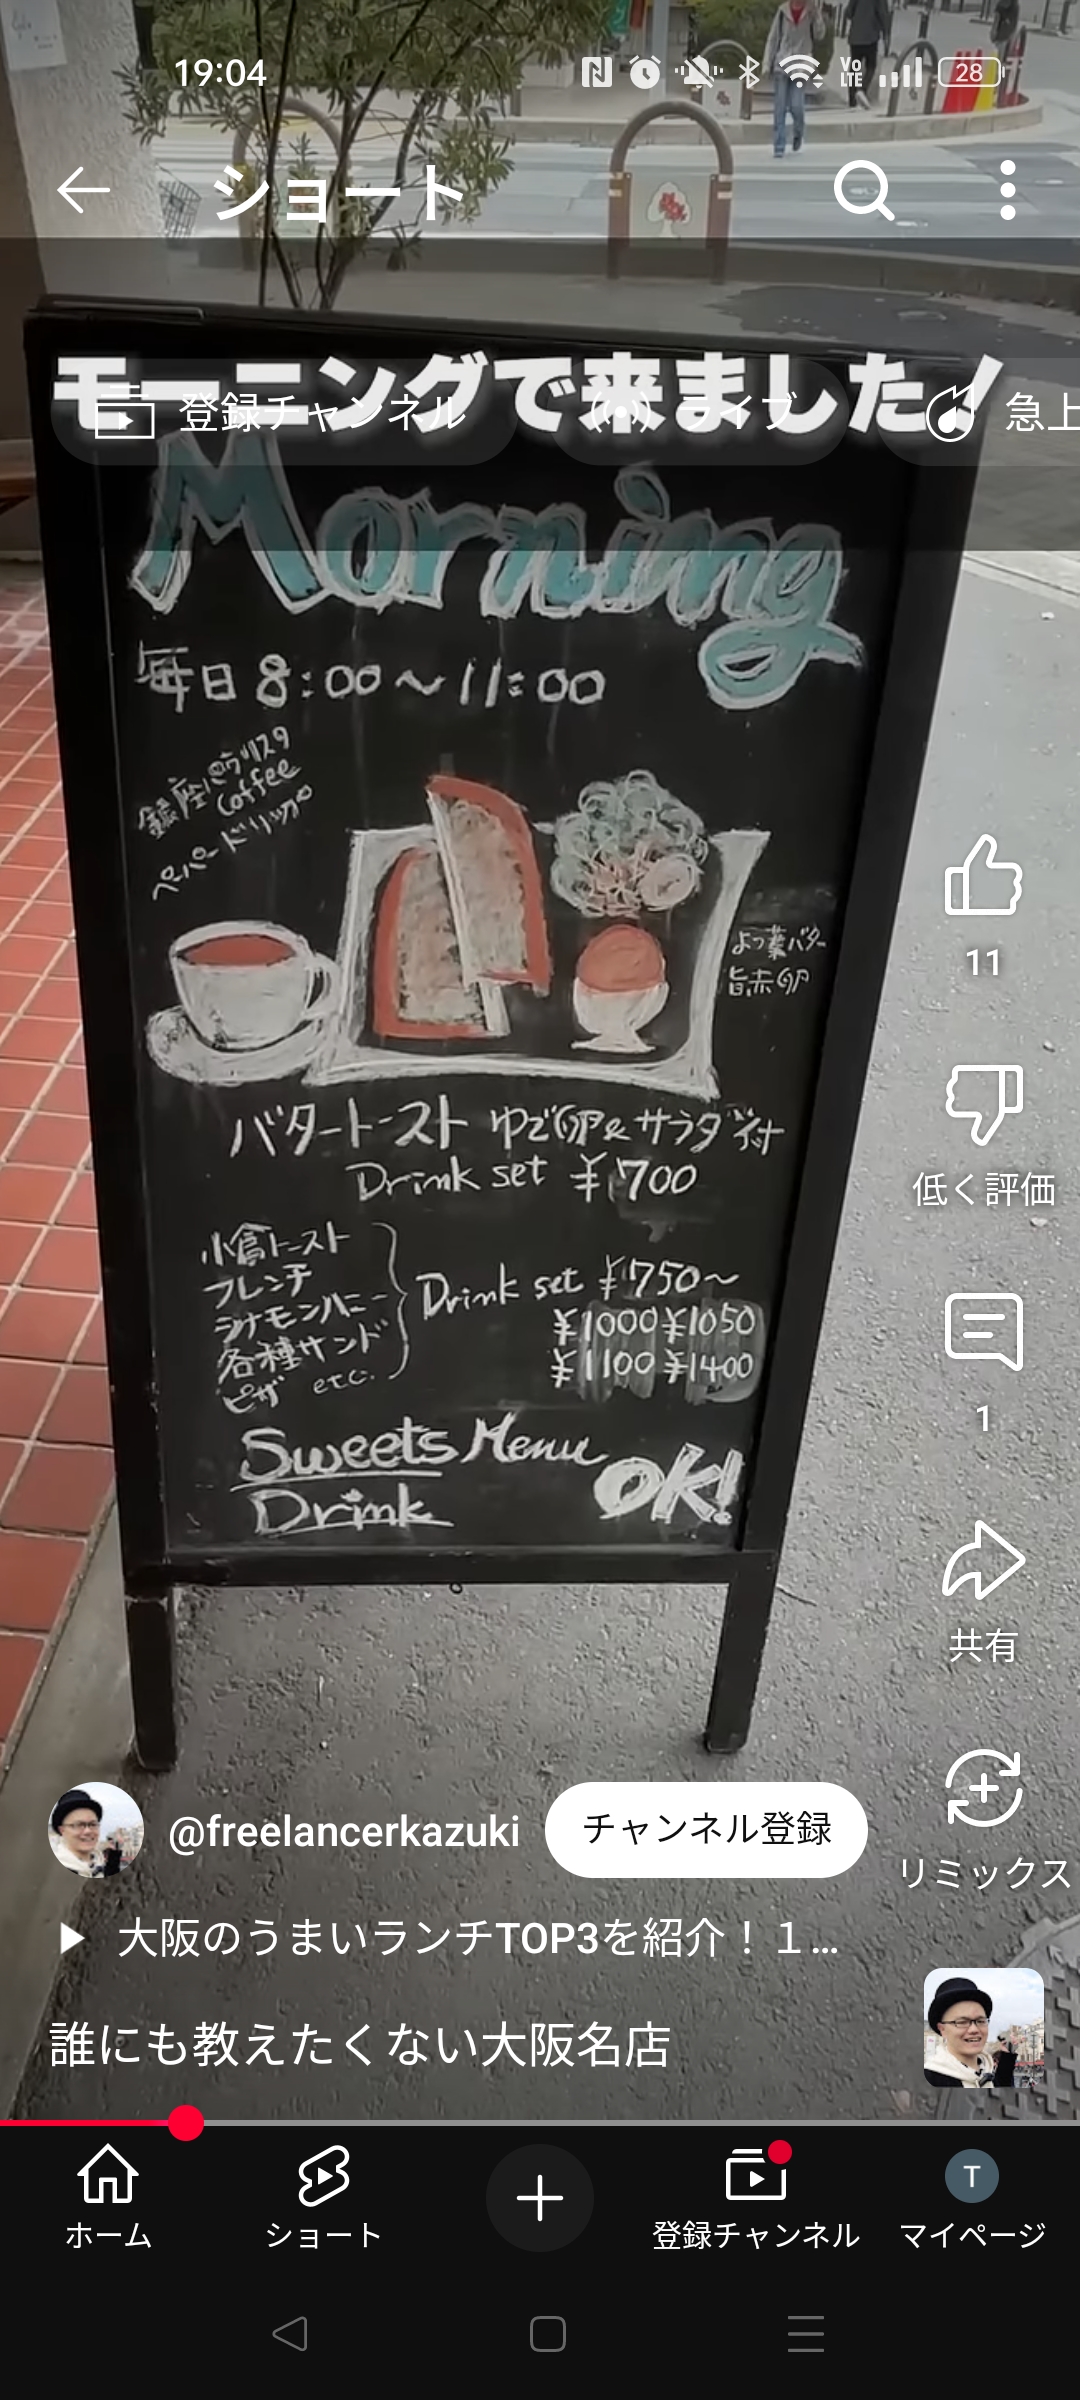 19:04
Vo LTE
28
ショート
モーニングで来ました！
登録チャンネル
ライブ
急上
Morning
毎日 8:00～11:00
銀座パウリスタ
Coffee
ペーパードリップ
よつ葉バター
旨赤卵
バタートースト ゆで卵&サラダ付
Drink set ¥700
小倉トースト
フレンチ
シナモンハニー
各種サンド
ピザ etc.
Drink set ¥750～
¥1000 ¥1050
¥1100 ¥1400
Sweets Menu
Drink
OK!
11
低く評価
1
共有
リミックス
@freelancerkazuki
チャンネル登録
大阪のうまいランチTOP3を紹介！１...
誰にも教えたくない大阪名店
ホーム
ショート
登録チャンネル
T
マイページ